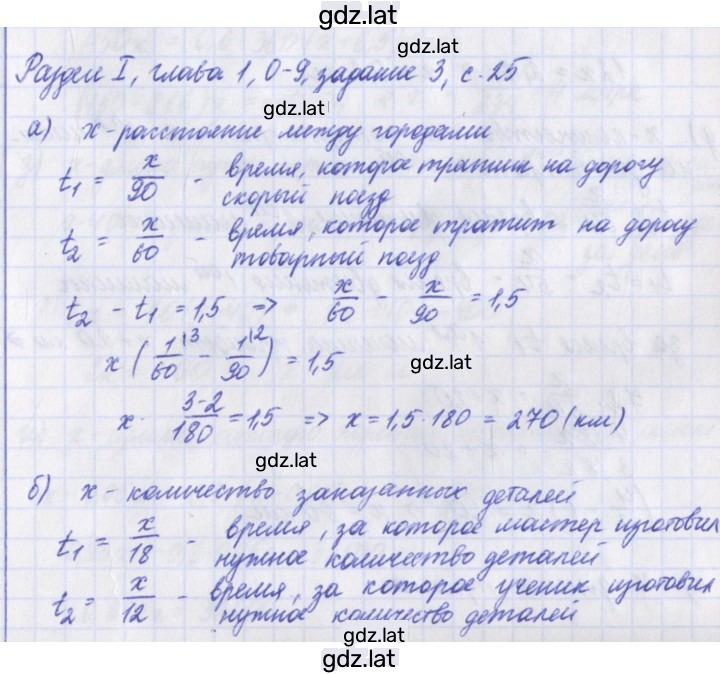 gdz.lat
Раздел I, глава 1, 0-9, задание 3, с. 25
gdz.lat
а) x - расстояние между городами
t₁ = x/90 - время, которое тратит на дорогу
скорый поезд
gdz.lat
t₂ = x/60 - время, которое тратит на дорогу
товарный поезд
t₂ - t₁ = 1,5 => x/60 - x/90 = 1,5
x (1/60 |3 - 1/90 |2) = 1,5
gdz.lat
x · 3-2/180 = 1,5 => x = 1,5 · 180 = 270 (км)
gdz.lat
б) x - количество заказанных деталей
t₁ = x/18 - время, за которое мастер изготовил
нужное количество деталей
t₂ = x/12 - время, за которое ученик изготовил
нужное количество деталей
gdz.lat
gdz.lat